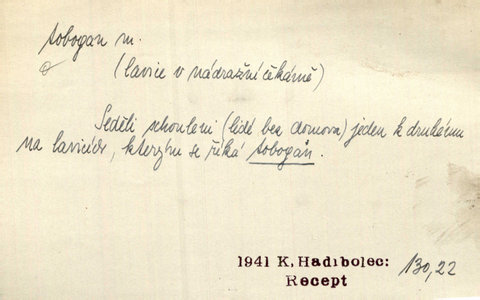 tobogan m.
(lavice v nádražní čekárně)
Seděli schouleni (lidé bez domova) jeden k druhému
na lavicích, kterým se říká tobogan.
1941 K. Hadibolec:
Recept
130,22